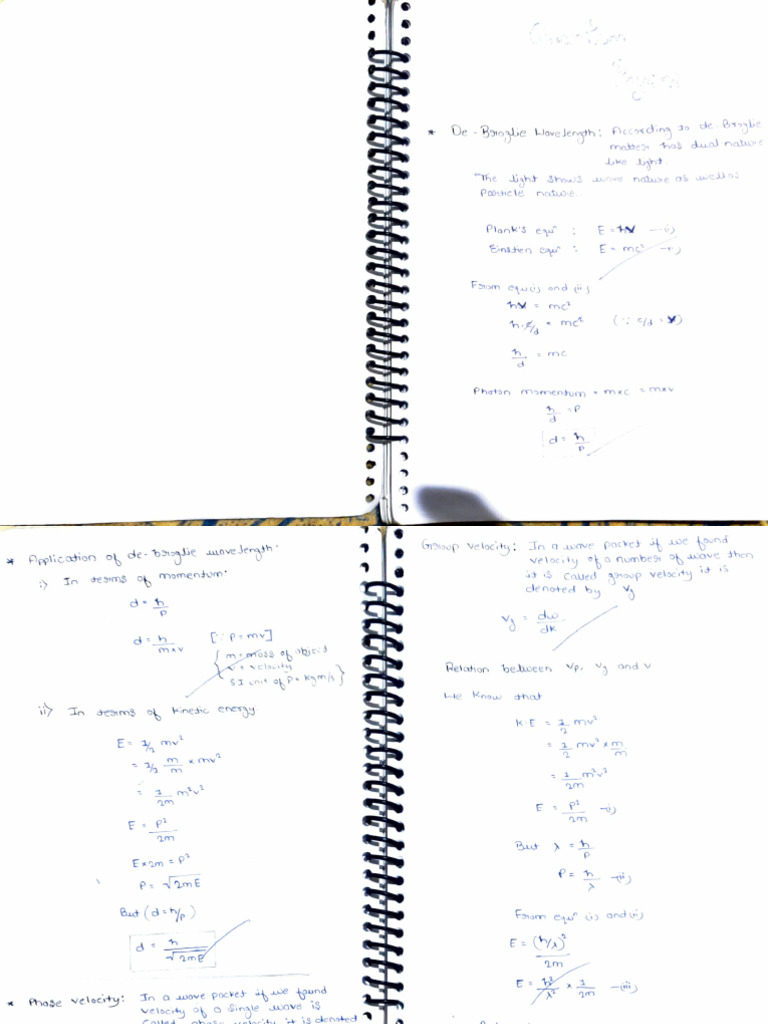 Quantum
Physics
* De-Broglie Wavelength: According to de-Broglie
matter has dual nature
like light.
"The light shows wave nature as well as
particle nature.
Plank's equⁿ : E = hν —(i)
Einstien equⁿ : E = mc² —(ii)
From equ(i) and (ii)
hν = mc²
h·c/d = mc² (∵ c/d = ν)
h/d = mc
Photon momentum = m×c = m×v
h/d = P
d = h/P
* Application of de-broglie wavelength:
i) In terms of momentum:
d = h/P
d = h/m×v [∵ P = mv]
{ m = mass of object
v = velocity
S.I unit of P = kgm/s }
ii) In terms of kinetic energy
E = 1/2 mv²
= 1/2 m/m × mv²
= 1/2m m²v²
E = P²/2m
E×2m = P²
P = √2mE
But (d = h/p)
d = h/√2mE
* Phase velocity: In a wave packet if we found
velocity of a single wave is
called phase velocity it is denoted
Group velocity: In a wave packet if we found
velocity of a number of wave then
it is called group velocity it is
denoted by Vg
Vg = dω/dk
Relation between Vp, Vg and v
We know that
K·E = 1/2 mv²
= 1/2 mv² × m/m
= 1/2m m²v²
E = P²/2m —(i)
But λ = h/P
P = h/λ —(ii)
From equⁿ (i) and (ii)
E = (h/λ)²/2m
E = h²/λ² × 1/2m —(iii)